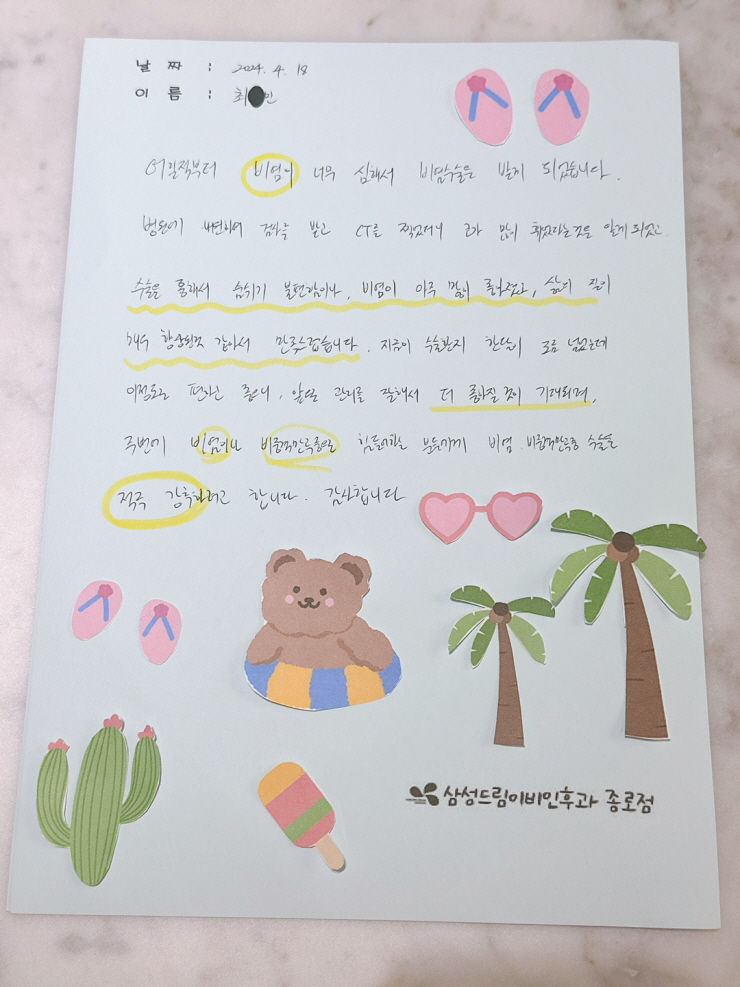 날 짜 : 2024. 4. 18
이 름 : 최 민
어릴적부터 비염이 너무 심해서 비염수술을 받게 되었습니다.
병원에 내원하여 검사를 받고 CT를 찍었더니 코가 많이 휘었다는것을 알게 되었고,
수술을 통해서 숨쉬기 불편함이나, 비염이 아주 많이 좋아졌고, 삶의 질이
매우 향상된것 같아서 만족스럽습니다. 지금이 수술한지 한달이 조금 넘었는데
이정도로 편하고 좋으니, 앞으로 관리를 잘해서 더 좋아질 것이 기대되며,
주변에 비염이나 비중격만곡증으로 힘들어하는 분들에게 비염, 비중격만곡증 수술을
적극 강추하려고 합니다. 감사합니다
삼성드림이비인후과 종로점